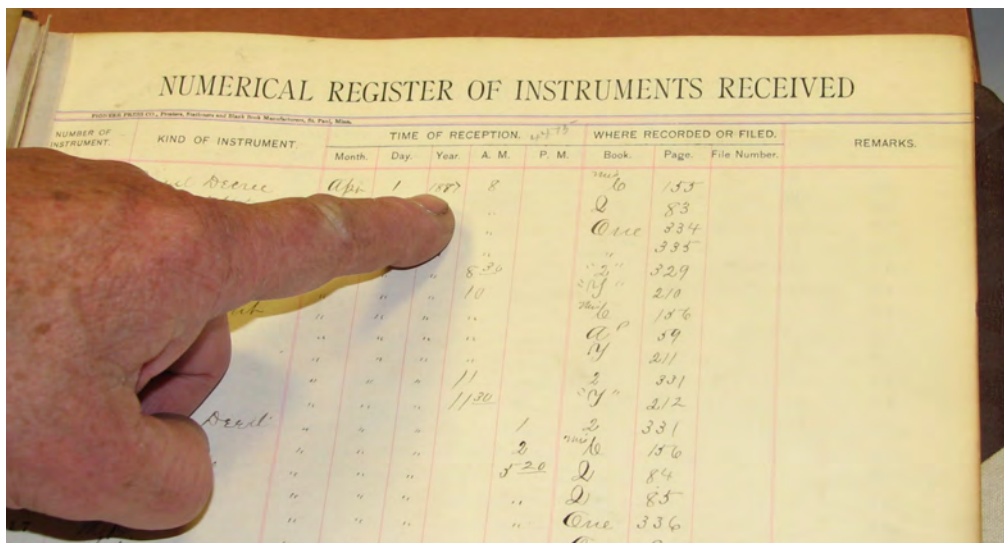 NUMERICAL REGISTER OF INSTRUMENTS RECEIVED
PIONEER PRESS CO., Printers, Stationers and Blank Book Manufacturers, St. Paul, Minn.
NUMBER OF INSTRUMENT. KIND OF INSTRUMENT. TIME OF RECEPTION. WHERE RECORDED OR FILED. REMARKS.
Month. Day. Year. A. M. P. M. Book. Page. File Number.
Decree Apr 1 1887 8 155
" 83
" One 334
" " 335
" " 8 30 "2" 329
" " 10 "Y" 210
" " " " 156
" " " " 59
" " " " Y 211
" " " 11 2 331
" " " 11 30 "Y" 212
Deed " " " 1 2 331
" " " 2 156
" " " 5 20 84
" " " " 85
" " " " One 336